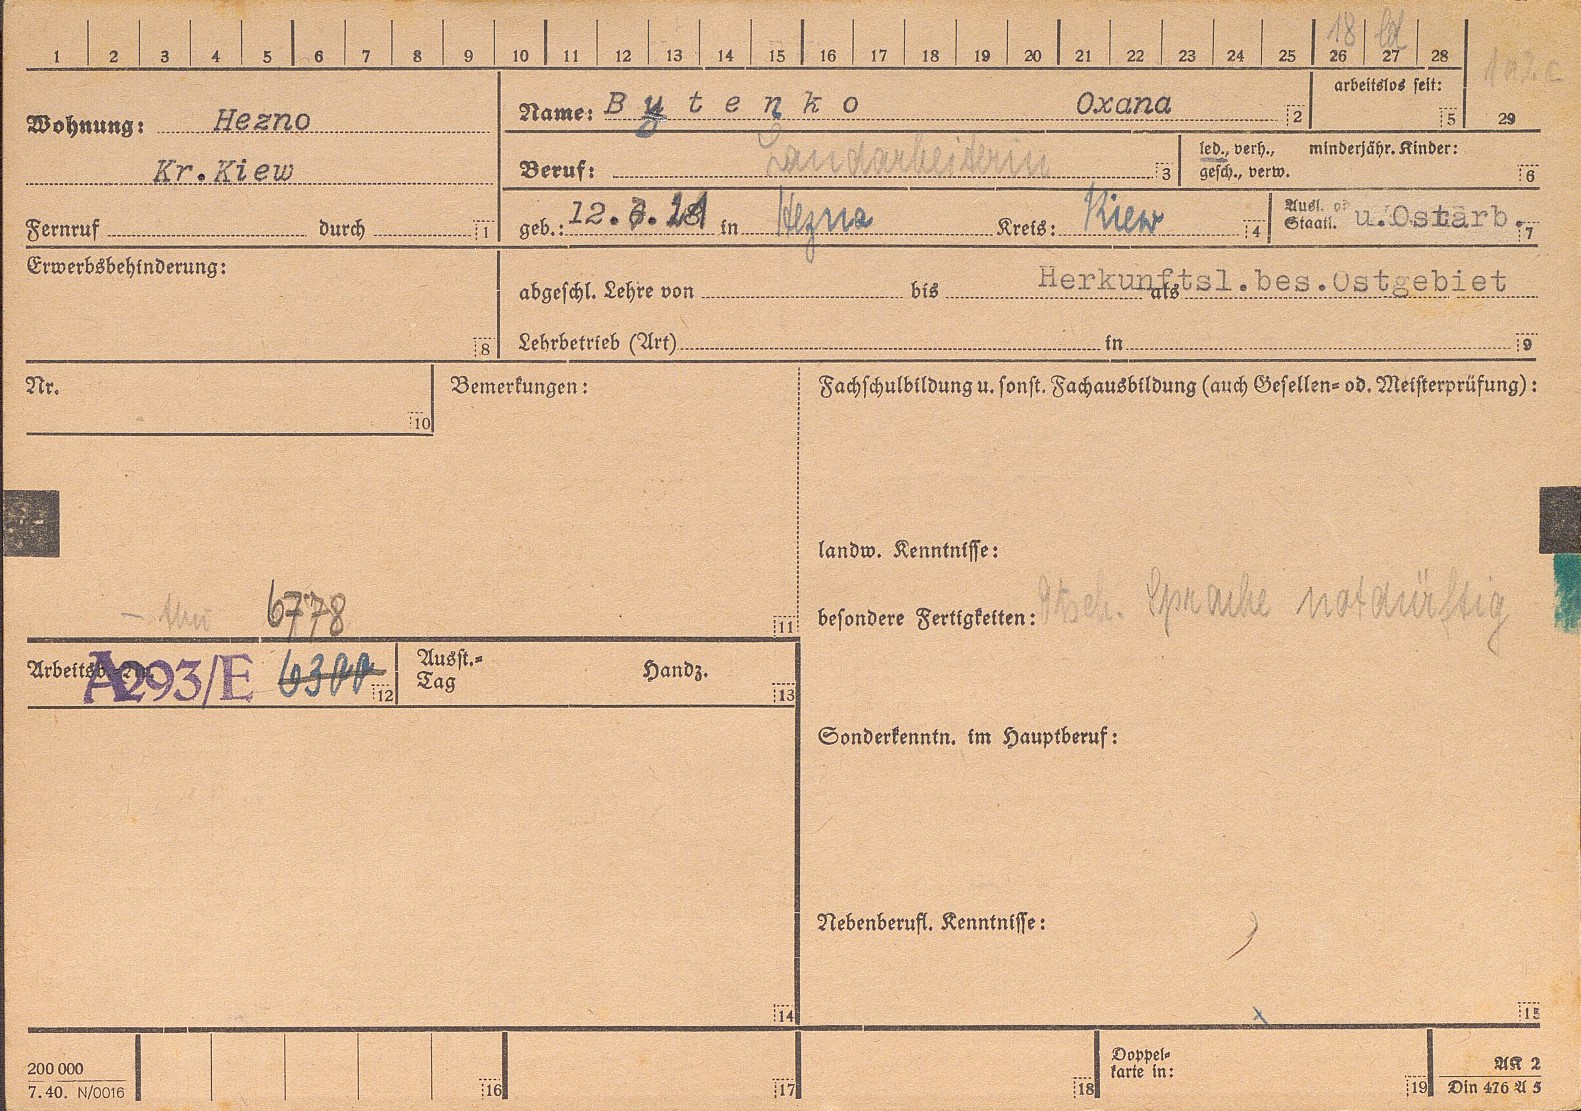 1 2 3 4 5 6 7 8 9 10 11 12 13 14 15 16 17 18 19 20 21 22 23 24 25 26 27 28
18
29
Wohnung: Hezno
Kr.Kiew
Fernruf durch 1
Name: Butenko Oxana 2
arbeitslos seit: 5
Beruf: Landarbeiterin 3
led., verh., minderjähr. Kinder:
gesch., verw. 6
geb.: 12. in Hezna Kreis: Kiew 4
Ausl. od.
Staatl. u.Ostarb. 7
Erwerbsbehinderung: 8
Herkunftsl.bes.Ostgebiet
abgeschl. Lehre von bis als
Lehrbetrieb (Art) in 9
Nr. 10
Bemerkungen: 11
6778
Fachschulbildung u. sonst. Fachausbildung (auch Gesellen= od. Meisterprüfung):
landw. Kenntnisse:
besondere Fertigkeiten: dtsch. Sprache notdürftig
Sonderkenntn. im Hauptberuf:
Nebenberufl. Kenntnisse:
15
Arbeitsb.-Nr. A293/E 6300 12
Ausst.=
Tag Handz. 13
14
200 000
7.40. N/0016
16 17 18
Doppel=
karte in: 19
AK 2
Din 476 A 5